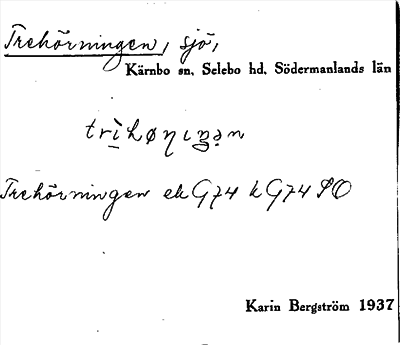 Trehörningen, sjö,
Kärnbo sn, Selebo hd, Södermanlands län
Trehörningen ek G74 k G74 SO
Karin Bergström 1937